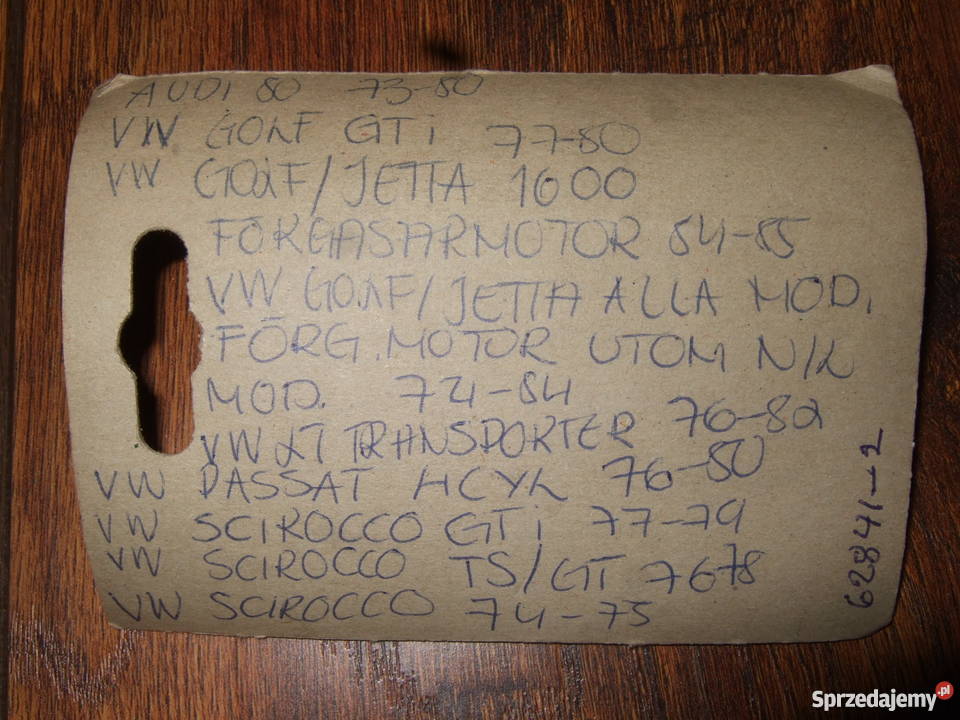 AUDI 80 73-80
VW GOLF GTi 77-80
VW GOLF/JETTA 1600
FÖRGASARMOTOR 84-85
VW GOLF/JETTA ALLA MOD.
FÖRG.MOTOR UTOM N/L
MOD. 74-84
VW LT TRANSPORTER 76-82
VW PASSAT 4CYL 76-80
VW SCIROCCO GTi 77-79
VW SCIROCCO TS/GT 76-78
VW SCIROCCO 74-75
62841-2
Sprzedajemy.pl